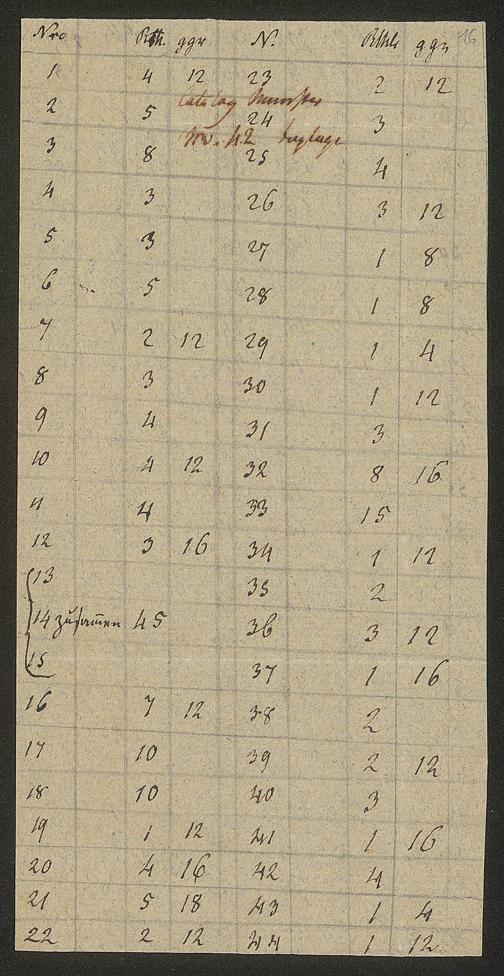 Nro Rth. ggr N. Rthl ggr 16
1 4 12 23 2 12
2 5 24 3
3 8 No. 42 25 4
4 3 26 3 12
5 3 27 1 8
6 5 28 1 8
7 2 12 29 1 4
8 3 30 1 12
9 4 31 3
10 4 12 32 8 16
11 4 33 15
12 3 16 34 1 12
13 35 2
14 zusam̄en 45 36 3 12
15 37 1 16
16 7 12 38 2
17 10 39 2 12
18 10 40 3
19 1 12 41 1 16
20 4 16 42 4
21 5 18 43 1 4
22 2 12 44 1 12